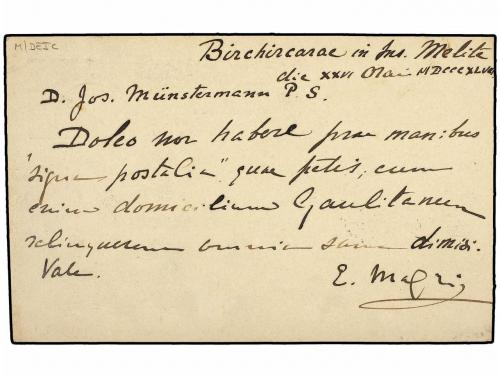 M/DEIC
Birchircarae in Ins. Melite
die XXVI Maii
D. Jos. Münstermann P. S.
Doleo non habere prae manibus
"signa postalia" quae petis; cum
enim domicilium Gaulitanum
relinquerem omnia sane dimisi.
Vale.
E. Magri